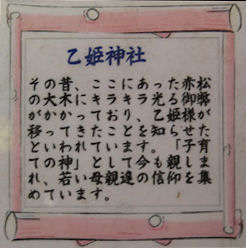 乙姫神社
その昔、ここにあった赤松
の大木にキラキラ光る御幣
がかかっており、乙姫様が
移ってきたことを知らせた
といわれています。「子育
ての神」として今も親しま
れ、若い母親達の信仰を集
めています。